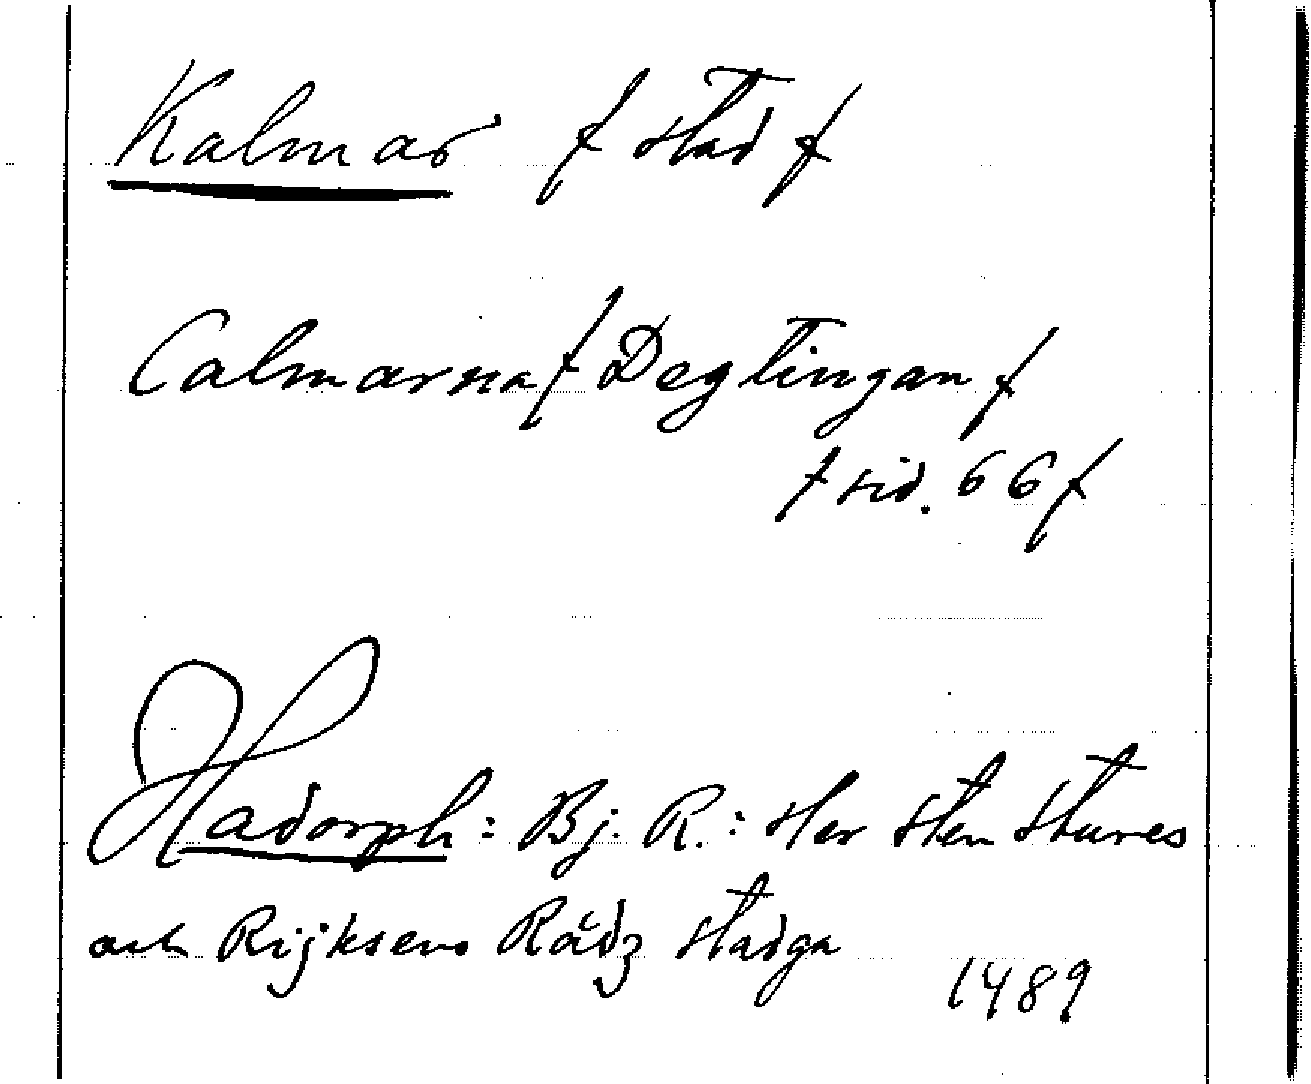 Kalmar / stad /
Calmarna / Degtingan /
/ sid. 66 /
Hadorph: Bj. R.: Her Sten Stures
och Rijksens Rådz stadga
1489